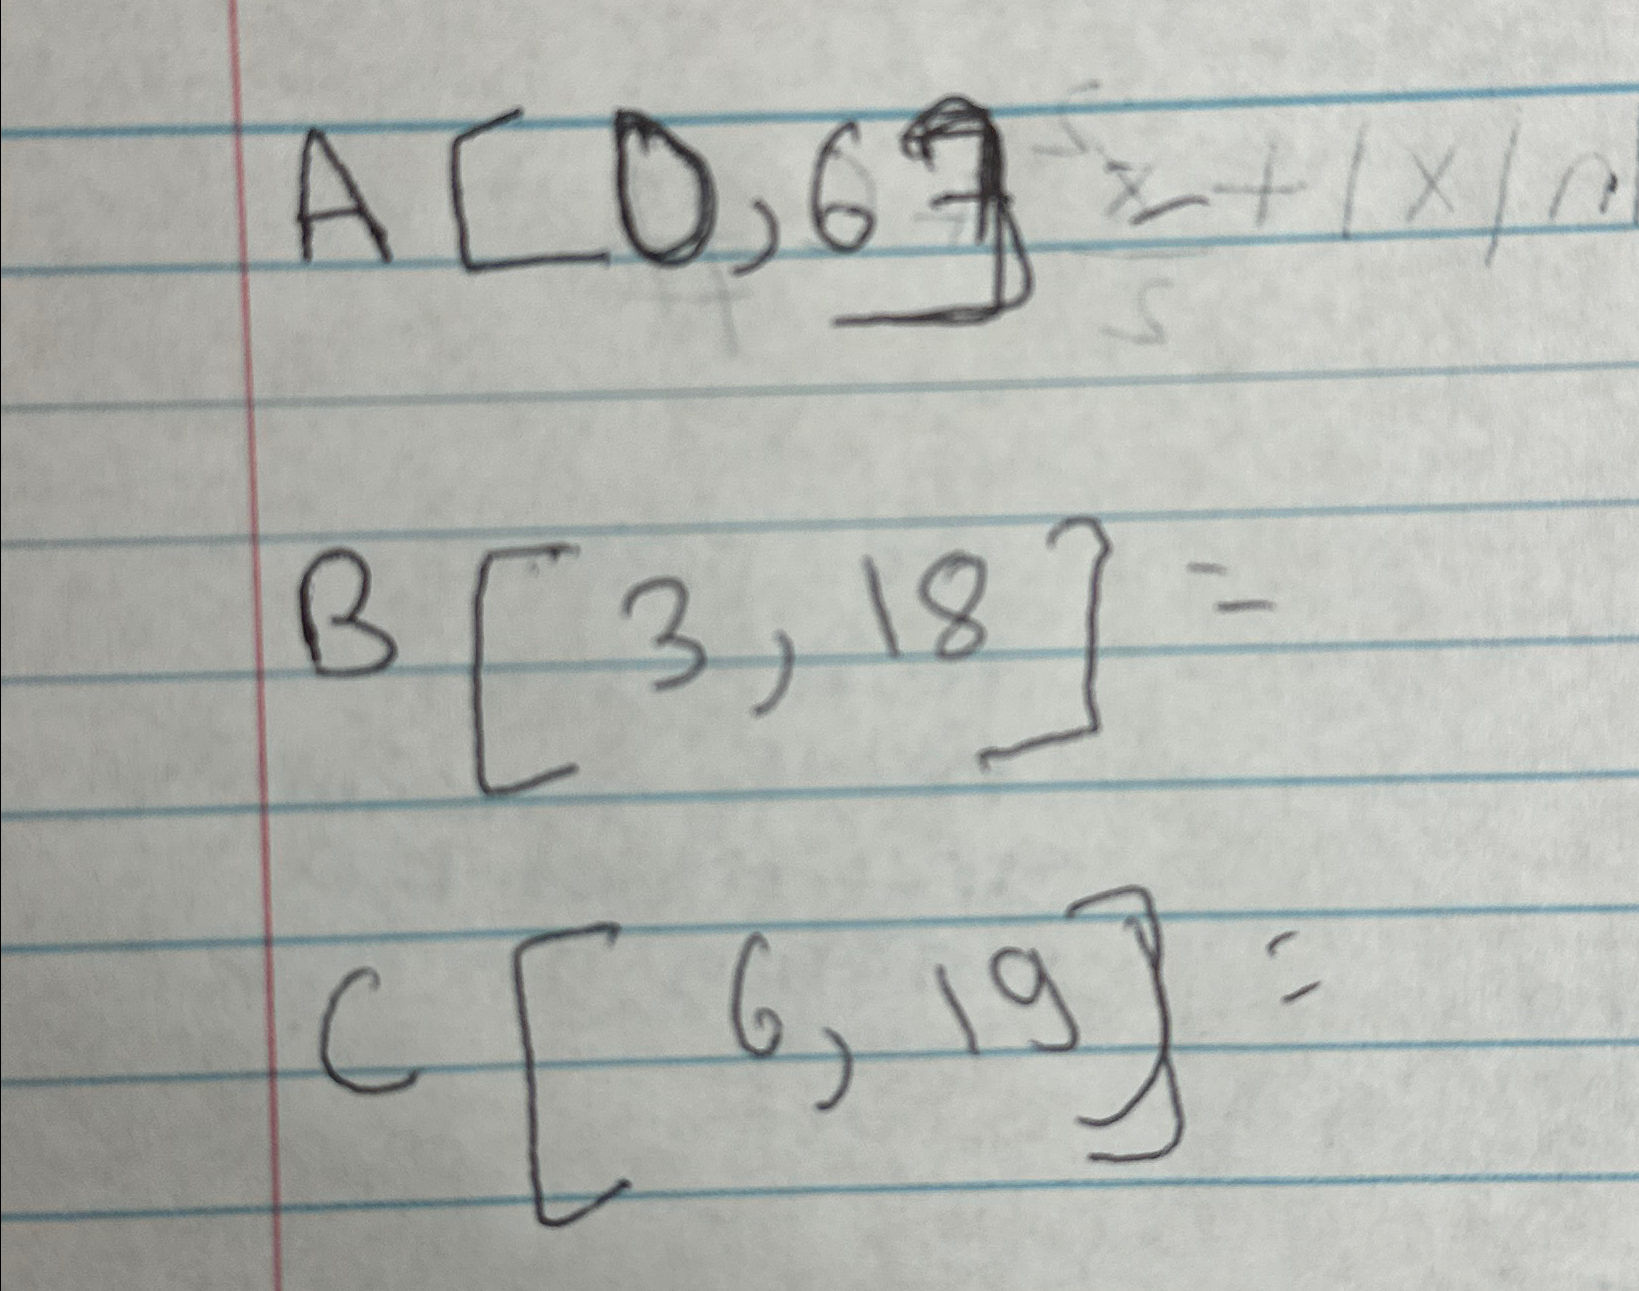 A [0, 67]
B [3, 18] =
C [6, 19] =